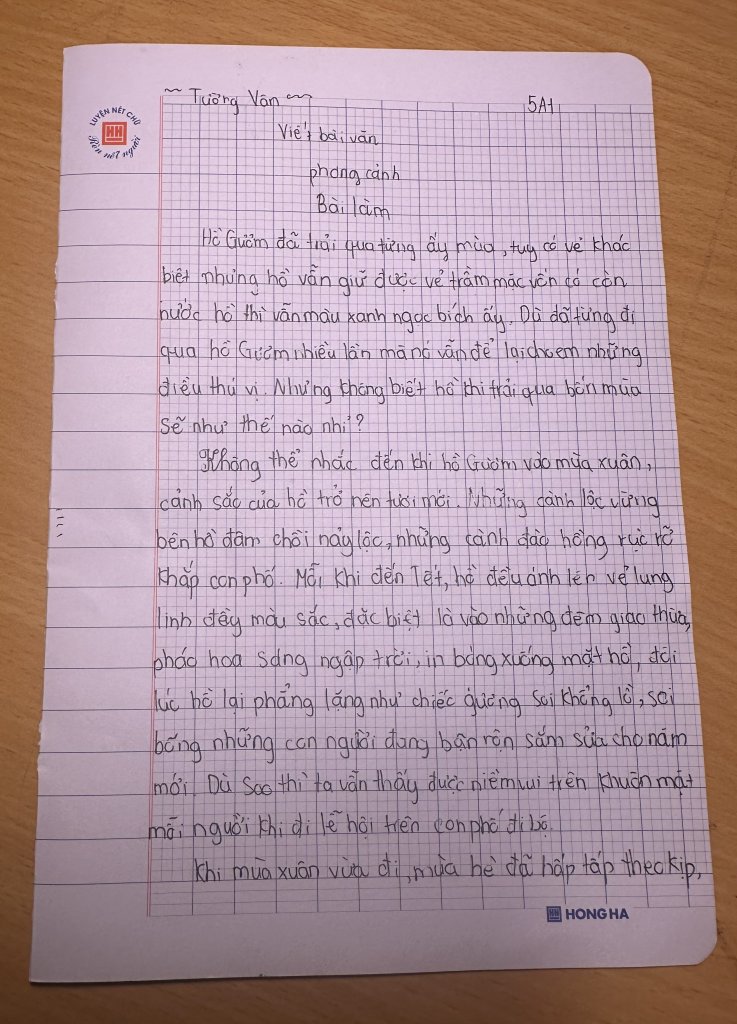 LUYỆN NÉT CHỮ
HH
Rèn nết người
~ Tường Vân ~
5A1
Viết bài văn
phong cảnh
Bài làm
Hồ Gươm đã trải qua từng ấy mùa, tuy có vẻ khác
biệt nhưng hồ vẫn giữ được vẻ trầm mặc vốn có còn
nước hồ thì vẫn màu xanh ngọc bích ấy. Dù đã từng đi
qua hồ Gươm nhiều lần mà nó vẫn để lại cho em những
điều thú vị. Nhưng không biết hồ khi trải qua bốn mùa
sẽ như thế nào nhỉ?
Không thể nhắc đến khi hồ Gươm vào mùa xuân,
cảnh sắc của hồ trở nên tươi mới. Những cành lộc vừng
bên hồ đâm chồi nảy lộc, những cành đào hồng rực rỡ
khắp con phố. Mỗi khi đến Tết, hồ đều ánh lên vẻ lung
linh đầy màu sắc, đặc biệt là vào những đêm giao thừa,
pháo hoa sáng ngập trời, in bóng xuống mặt hồ, đôi
lúc hồ lại phẳng lặng như chiếc gương soi khổng lồ, soi
bóng những con người đang bận rộn sắm sửa cho năm
mới. Dù sao thì ta vẫn thấy được niềm vui trên khuôn mặt
mỗi người khi đi lễ hội trên con phố đi bộ.
Khi mùa xuân vừa đi, mùa hè đã hấp tấp theo kịp,
HH HONG HA